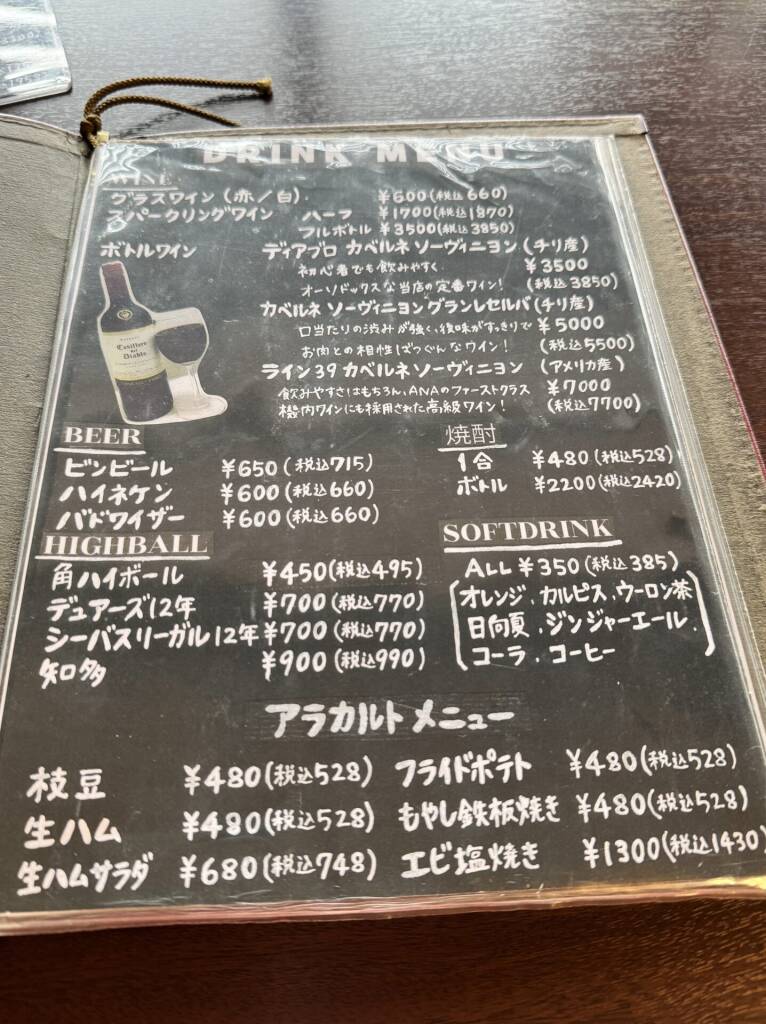 DRINK MENU
WINE
グラスワイン（赤／白）. ¥600(税込660)
スパークリングワイン ハーフ ¥1700(税込1870)
フルボトル ¥3500(税込3850)
ボトルワイン ディアブロ カベルネ ソーヴィニヨン（チリ産）
初心者でも飲みやすく ¥3500
オーソドックスな当店の定番ワイン! (税込3850)
カベルネ ソーヴィニヨン グランレセルバ（チリ産）
口当たりの渋みが強く、後味がすっきりで ¥5000
お肉との相性ばつぐんなワイン! (税込5500)
ライン39 カベルネ ソーヴィニヨン （アメリカ産）
飲みやすさはもちろん、ANAのファーストクラス ¥7000
機内ワインにも採用された高級ワイン! (税込7700)
BEER
ビンビール ¥650(税込715)
ハイネケン ¥600(税込660)
バドワイザー ¥600(税込660)
焼酎
1合 ¥480(税込528)
ボトル ¥2200(税込2420)
HIGHBALL
角ハイボール ¥450(税込495)
デュアーズ12年 ¥700(税込770)
シーバスリーガル12年 ¥700(税込770)
知多 ¥900(税込990)
SOFTDRINK
ALL ¥350(税込385)
オレンジ、カルピス、ウーロン茶
日向夏、ジンジャーエール、
コーラ、コーヒー
アラカルトメニュー
枝豆 ¥480(税込528) フライドポテト ¥480(税込528)
生ハム ¥480(税込528) もやし鉄板焼き ¥480(税込528)
生ハムサラダ ¥680(税込748) エビ塩焼き ¥1300(税込1430)